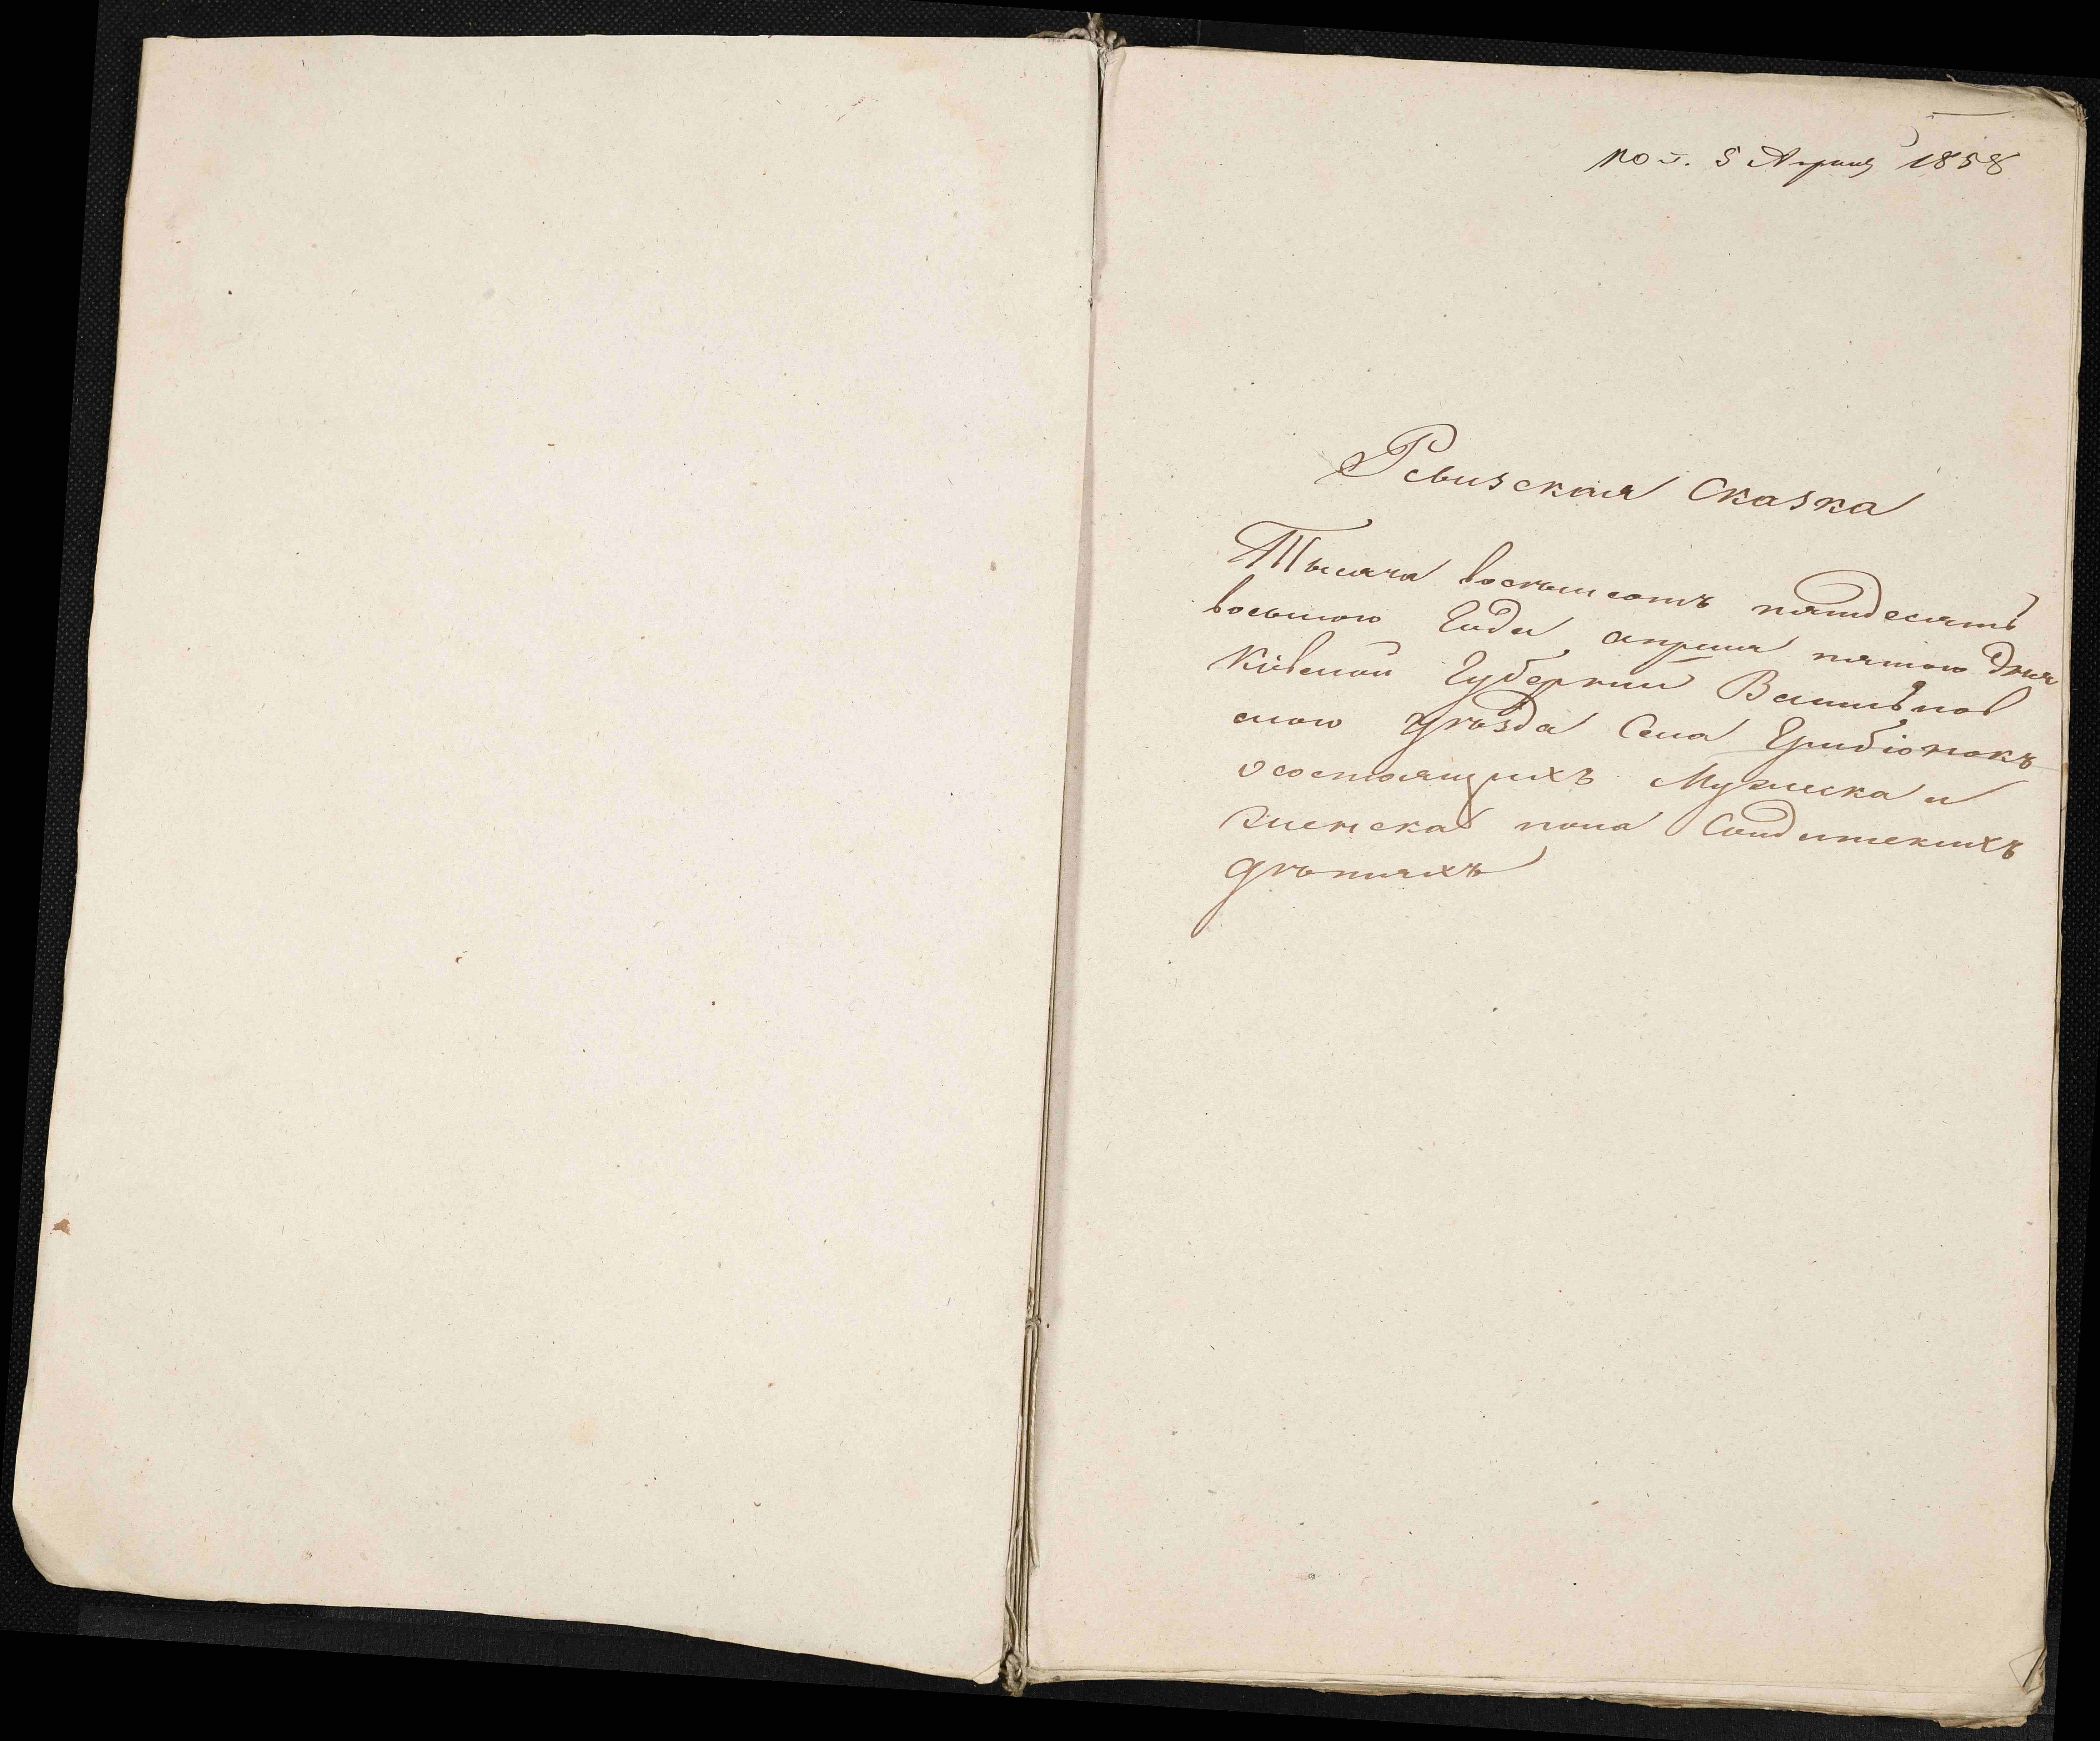 пол. 5 Апреля 1858
Ревизская Сказка
Тысяча восемьсотъ пятдесятъ
восьмого Года апреля пятого Дня
Кіевской Губерніи Васильков
ского уѣзда Села Грибіонокъ
о состоящихъ Мужеска и
женска пола Солдатскихъ
дѣтяхъ